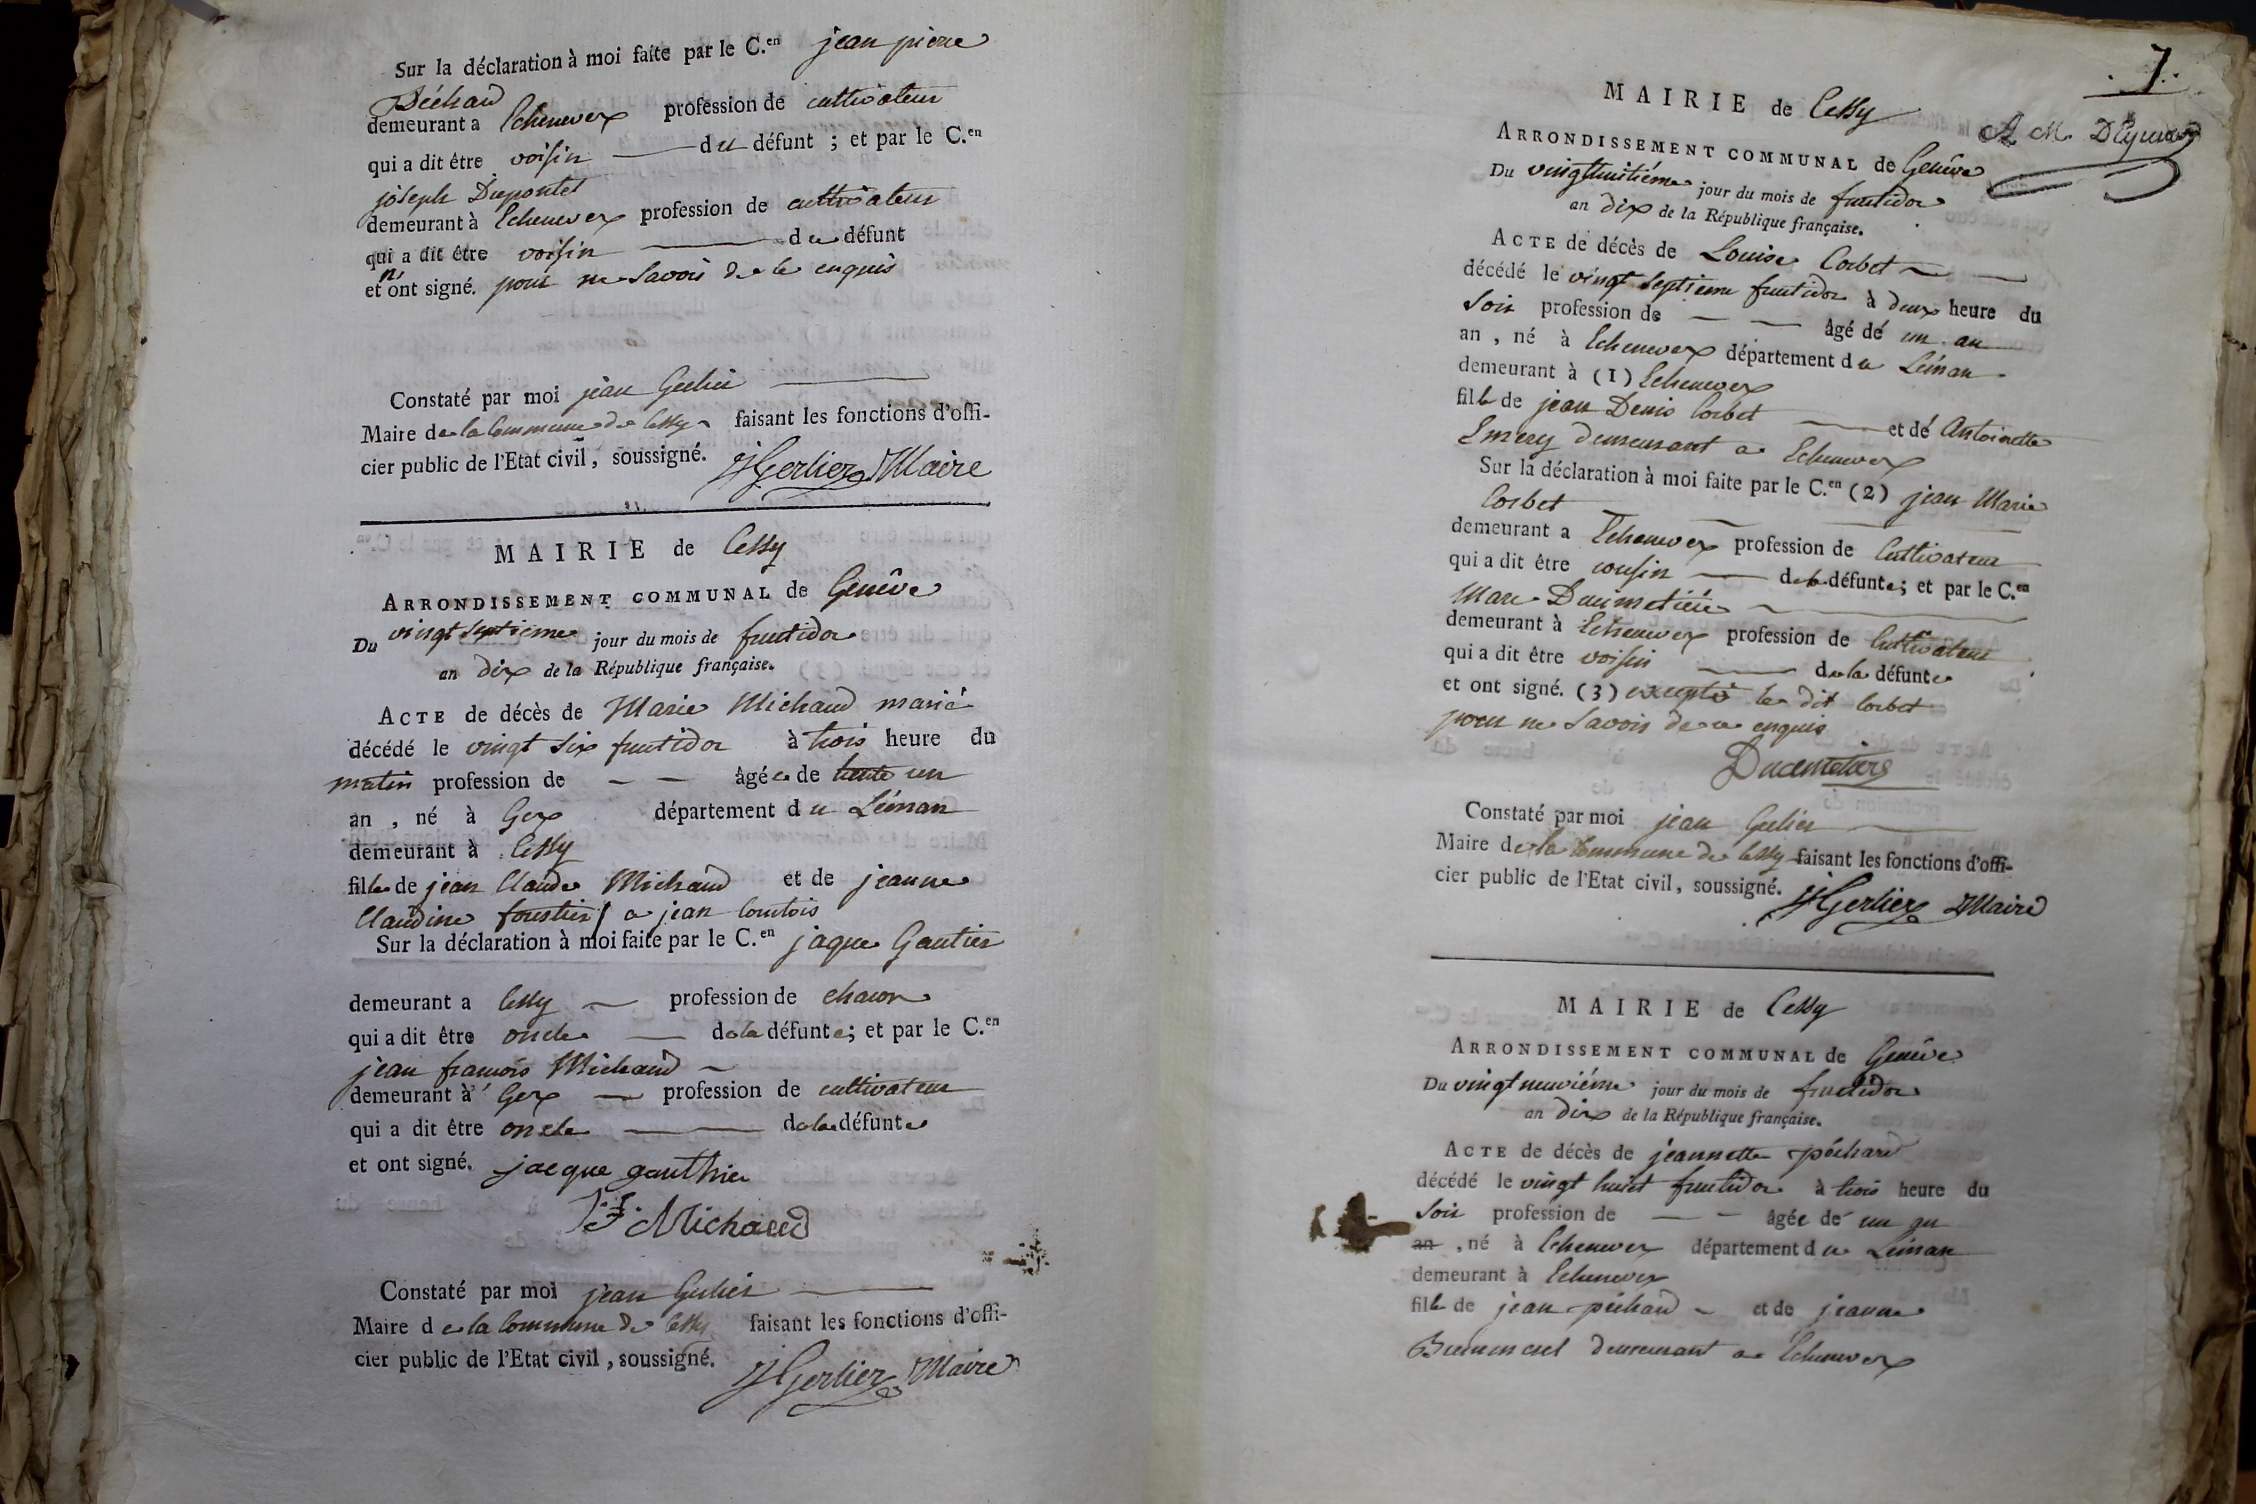 Sur la déclaration à moi faite par le C.en jean pierre
Péchard
demeurant a Echenevex profession de cultivateur
qui a dit être voisin du défunt ; et par le C.en
joseph Dupontet
demeurant à Echenevex profession de cultivateur
qui a dit être voisin du défunt
et n'ont signé. pour ne savoir de ce enquis
Constaté par moi jean Gerlier
Maire de la Commune de Cessy faisant les fonctions d'offi-
cier public de l'Etat civil, soussigné. J Gerlier Maire
MAIRIE de Cessy
ARRONDISSEMENT COMMUNAL de Genêve
Du vingt septiéme jour du mois de fructidor
an dix de la République française.
ACTE de décès de Marie Michaud marié
décédé le vingt six fructidor à trois heure du
matin profession de âgée de trente un
an , né à Gex département du Léman
demeurant à Cessy
fille de jean Claude Michaud et de jeanne
Claudine a jean Comtois
Sur la déclaration à moi faite par le C.en jaque Gautier
demeurant a Cessy profession de
qui a dit être oncle de la défunte; et par le C.en
jean francois Michaud
demeurant à Gex profession de cultivateur
qui a dit être oncle de la défunte
et ont signé. jacque gauthier
J.F. Michaud
Constaté par moi jean Gerlier
Maire de la Commune de Cessy faisant les fonctions d'offi-
cier public de l'Etat civil, soussigné. J Gerlier Maire
7.
MAIRIE de Cessy
ARRONDISSEMENT COMMUNAL de Genêve
Du vingthuitiéme jour du mois de fructidor
an dix de la République française.
ACTE de décès de Louise Corbet
décédé le vingt septieme fructidor à deux heure du
soir profession de âgé dé un an
an , né à Echenevex département du Léman
demeurant à (1) Echenevex
fille de jean Denis Corbet et dé Antoinette
Emery demeurant a Echenevex
Sur la déclaration à moi faite par le C.en (2) jean Marie
Corbet
demeurant a Echenevex profession de Cultivateur
qui a dit être cousin de la défunte; et par le C.en
Marc Ducimetiére
demeurant à Echenevex profession de Cultivateur
qui a dit être voisin de la défunte
et ont signé. (3) excepté le dit Corbet
pour ne savoir de ce enquis
Ducimetiere
Constaté par moi jean Gerlier
Maire de la Commune de Cessy faisant les fonctions d'offi-
cier public de l'Etat civil, soussigné. J Gerlier Maire
MAIRIE de Cessy
ARRONDISSEMENT COMMUNAL de Genêve
Du vingt neuviéme jour du mois de fructidor
an dix de la République française.
ACTE de décès de jeannette péchard
décédé le vingt huit fructidor à trois heure du
soir profession de âgée dé un an
an , né à Echenevex département du Léman
demeurant à Echenevex
fille de jean péchard et de jeanne
demeurant a Echenevex